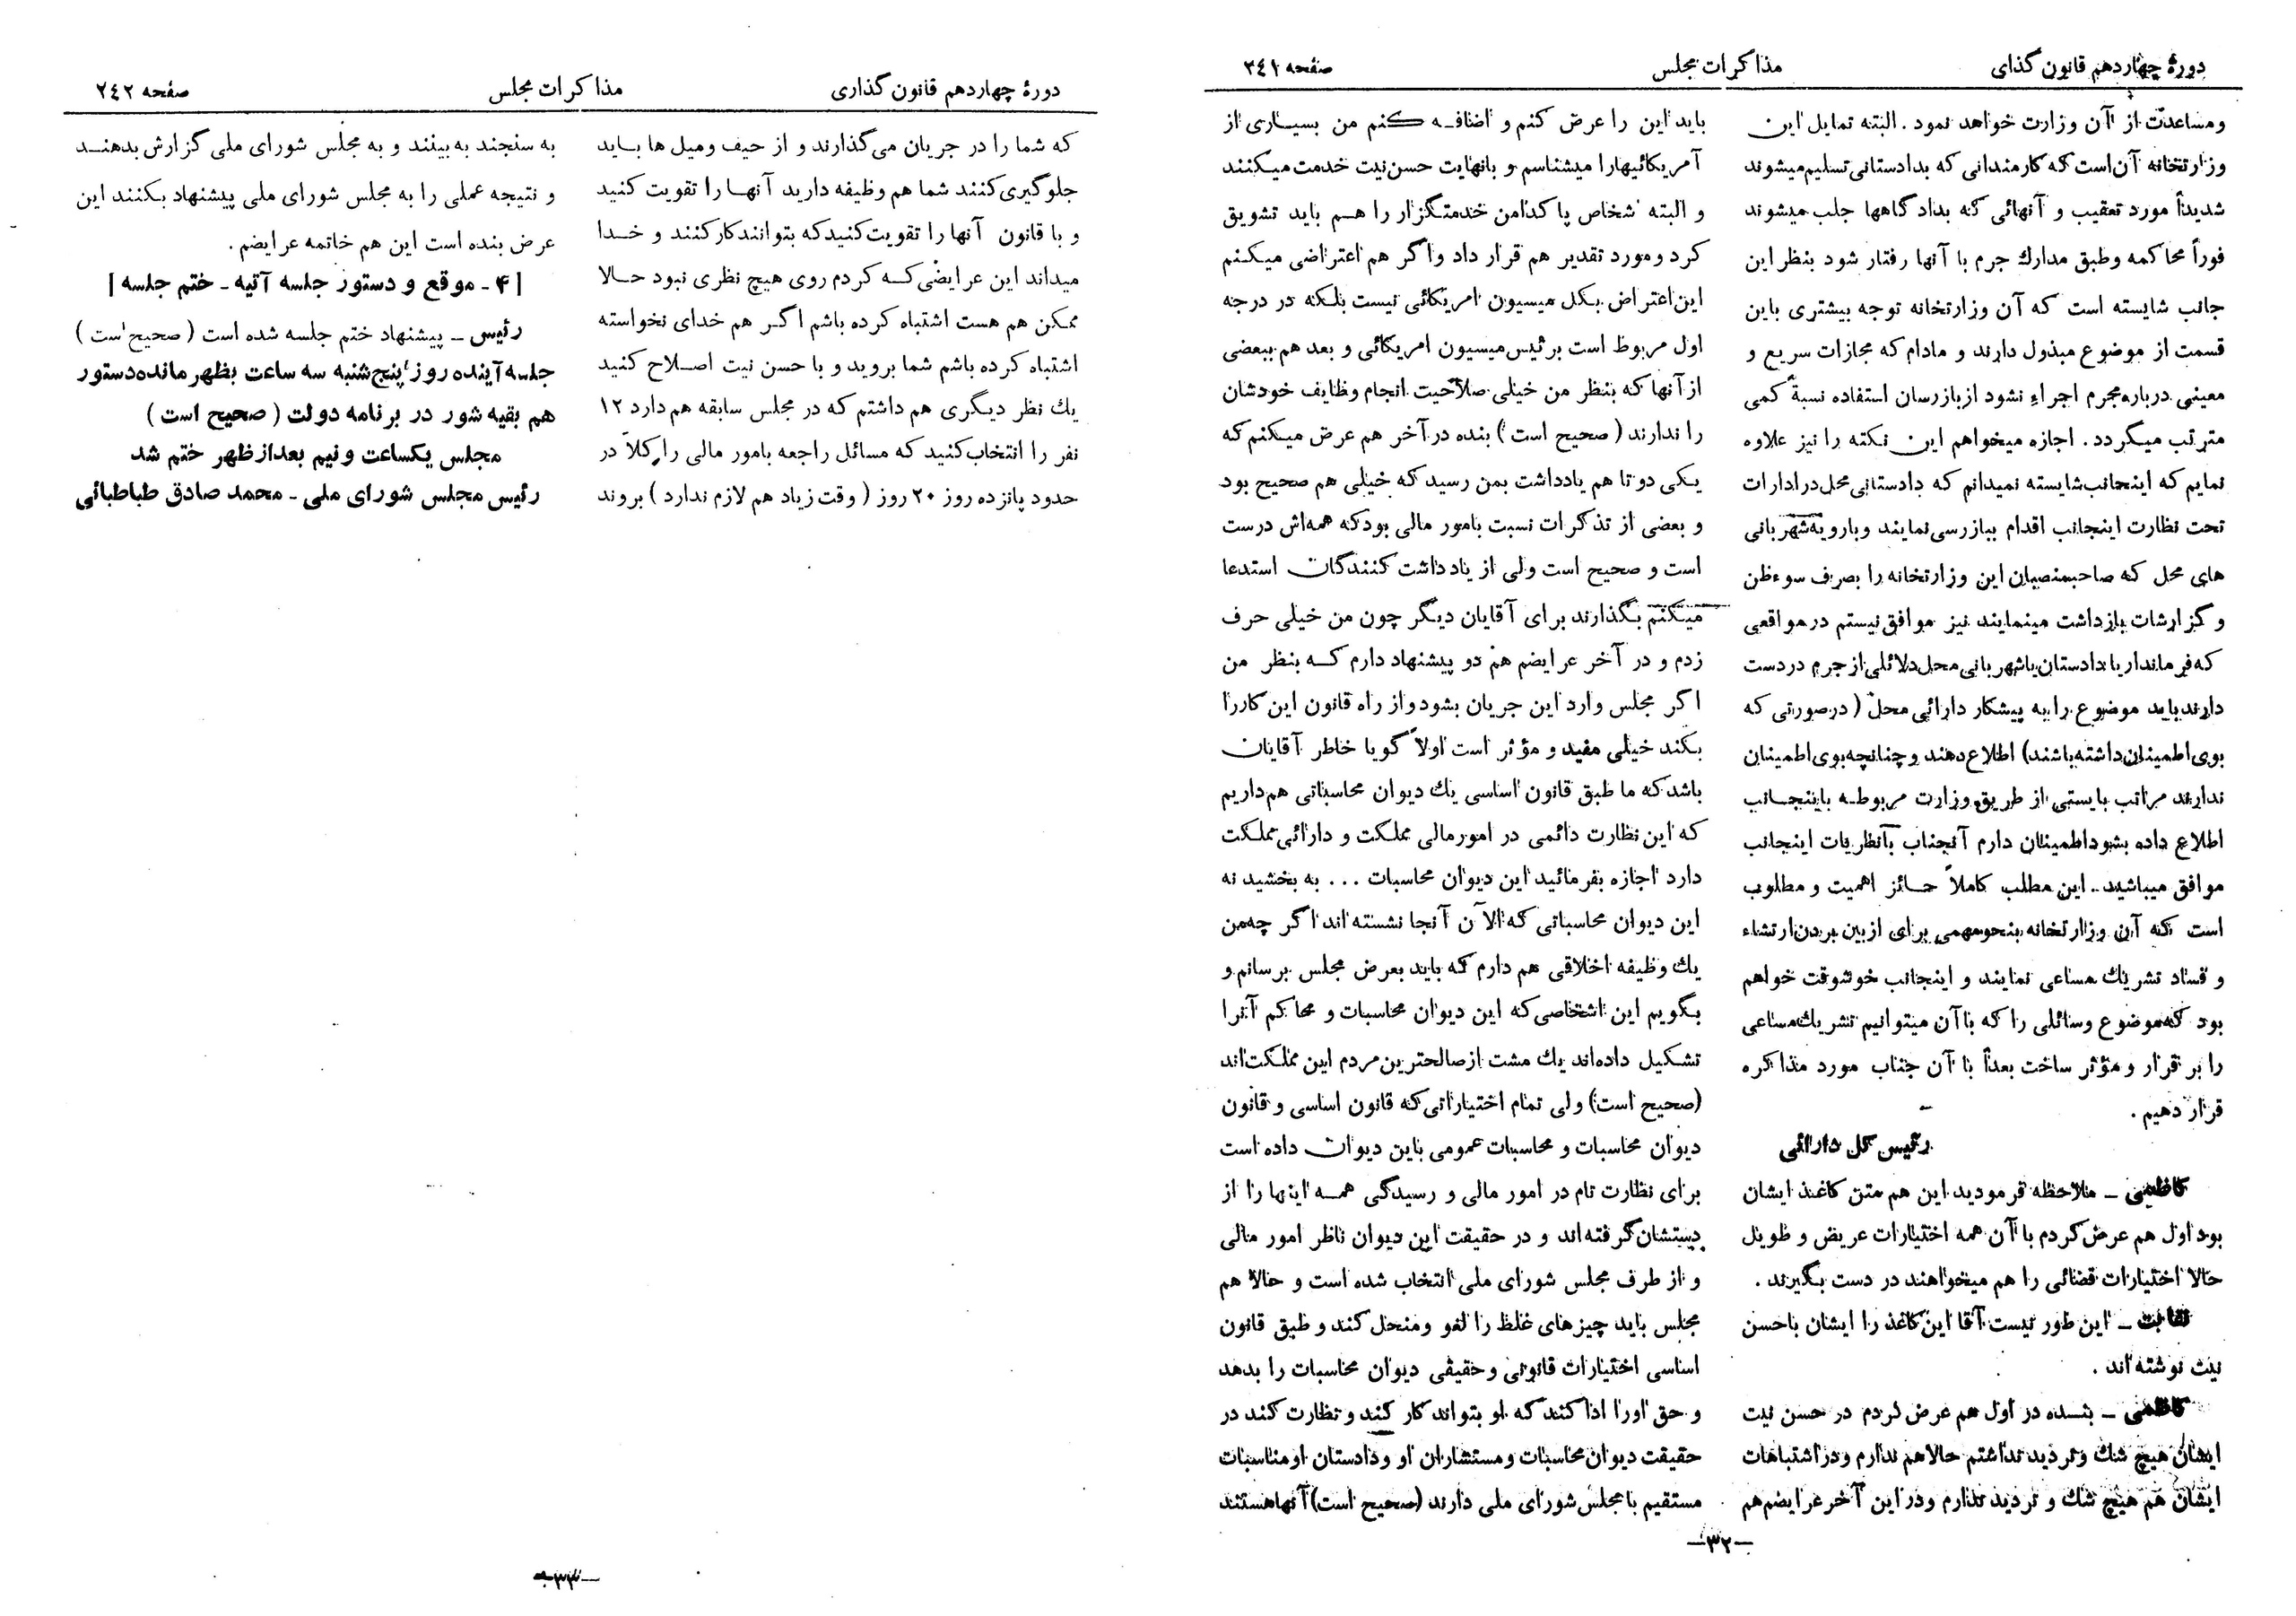 دورهٔ چهاردهم قانون گذای
مذاکرات مجلس
صفحه ۳٤۱
ومساعدت از آن وزارت خواهد نمود . البته تمایل این
وزارتخانه آن است که کارمندانی که بدادستانی تسلیم میشوند
شدیداً مورد تعقیب و آنهائی که بدادگاهها جلب میشوند
فوراً محاکمه وطبق مدارك جرم با آنها رفتار شود بنظر این
جانب شایسته است که آن وزارتخانه توجه بیشتری باین
قسمت از موضوع مبذول دارند و مادام که مجازات سریع و
معینی درباره مجرم اجراء نشود از بازرسان استفاده نسبة کمی
مترتب میگردد . اجازه میخواهم این نکته را نیز علاوه
نمایم که اینجانب شایسته نمیدانم که دادستانی محل در ادارات
تحت نظارت اینجانب اقدام ببازرسی نمایند و بارویه شهربانی
های محل که صاحبمنصبان این وزارتخانه را بصرف سوءظن
و گزارشات بازداشت مینمایند نیز موافق نیستم در مواقعی
که فرماندار یا دادستان یا شهربانی محل دلائلی از جرم در دست
دارند باید موضوع را به پیشکار دارائی محل ( درصورتی که
بوی اطمینان داشته باشند) اطلاع دهند و چنانچه بوی اطمینان
ندارند مراتب بایستی از طریق وزارت مربوطه باینجانب
اطلاع داده بشود اطمینان دارم آنجناب بانظریات اینجانب
موافق میباشید . این مطلب کاملاً حائز اهمیت و مطلوب
است که آن وزارتخانه بنحو مهمی برای از بین بردن ارتشاء
و فساد تشریك مساعی نمایند و اینجانب خوشوقت خواهم
بود که موضوع وسائلی را که با آن میتوانیم تشریك مساعی
را برقرار و مؤثر ساخت بعداً با آن جناب مورد مذاکره
قرار دهیم .
رئیس کل دارائی
کاظمی – ملاحظه فرمودید این هم متن کاغذ ایشان
بود اول هم عرض کردم با آن همه اختیارات عریض و طویل
حالا اختیارات قضائی را هم میخواهند در دست بگیرند .
نقابت – این طور نیست آقا این کاغذ را ایشان باحسن
نیت نوشته اند .
کاظمی – بنده در اول هم عرض کردم در حسن نیت
ایشان هیچ شك و تردید نداشتم حالا هم ندارم و در اشتباهات
ایشان هم هیچ شك و تردید ندارم و در این آخر عرایضم هم
باید این را عرض کنم و اضافه کنم من بسیاری از
آمریکائیهارا میشناسم و بانهایت حسن نیت خدمت میکنند
و البته اشخاص پاکدامن خدمتگزار را هم باید تشویق
کرد و مورد تقدیر هم قرار داد و اگر هم اعتراضی میکنم
این اعتراض بکل میسیون امریکائی نیست بلکه در درجه
اول مربوط است برئیس میسیون امریکائی و بعد هم ببعضی
از آنها که بنظر من خیلی صلاحیت انجام وظایف خودشان
را ندارند ( صحیح است ) بنده در آخر هم عرض میکنم که
یکی دو تا هم یادداشت بمن رسید که خیلی هم صحیح بود
و بعضی از تذکرات نسبت بامور مالی بود که همه‌اش درست
است و صحیح است ولی از یادداشت کنندگان استدعا
میکنم بگذارند برای آقایان دیگر چون من خیلی حرف
زدم و در آخر عرایضم هم دو پیشنهاد دارم که بنظر من
اگر مجلس وارد این جریان بشود و از راه قانون این کاررا
بکند خیلی مفید و مؤثر است اولاً گویا خاطر آقایان
باشد که ما طبق قانون اساسی یك دیوان محاسباتی هم داریم
که این نظارت دائمی در امور مالی مملکت و دارائی مملکت
دارد اجازه بفرمائید این دیوان محاسبات ... به بخشید نه
این دیوان محاسباتی که الآن آنجا نشسته اند اگر چه من
یك وظیفه اخلاقی هم دارم که باید بعرض مجلس برسانم و
بگویم این اشخاصی که این دیوان محاسبات و محاکم آنرا
تشکیل داده‌اند یك مشت از صالحترین مردم این مملکت‌اند
(صحیح است) ولی تمام اختیاراتی که قانون اساسی و قانون
دیوان محاسبات و محاسبات عمومی باین دیوان داده است
برای نظارت تام در امور مالی و رسیدگی همه اینها را از
دستشان گرفته‌اند و در حقیقت این دیوان ناظر امور مالی
و از طرف مجلس شورای ملی انتخاب شده است و حالا هم
مجلس باید چیزهای غلط را لغو ومنحل کند و طبق قانون
اساسی اختیارات قانونی و حقیقی دیوان محاسبات را بدهد
و حق اورا ادا کند که او بتواند کار کند و نظارت کند در
حقیقت دیوان محاسبات و مستشاران او و دادستان او مناسبات
مستقیم با مجلس شورای ملی دارند (صحیح است) آنها هستند
—۳۲—
دورهٔ چهاردهم قانون گذاری
مذاکرات مجلس
صفحه ۲٤۲
که شما را در جریان می‌گذارند و از حیف ومیل ها باید
جلوگیری کنند شما هم وظیفه دارید آنها را تقویت کنید
و با قانون آنها را تقویت کنید که بتوانند کار کنند و خدا
میداند این عرایضی که کردم روی هیچ نظری نبود حالا
ممکن هم هست اشتباه کرده باشم اگر هم خدای نخواسته
اشتباه کرده باشم شما بروید و با حسن نیت اصلاح کنید
یك نظر دیگری هم داشتم که در مجلس سابقه هم دارد ۱۲
نفر را انتخاب کنید که مسائل راجعه بامور مالی را کلاً در
حدود پانزده روز ۲۰ روز ( وقت زیاد هم لازم ندارد ) بروند
به سنجند به بینند و به مجلس شورای ملی گزارش بدهند
و نتیجه عملی را به مجلس شورای ملی پیشنهاد بکنند این
عرض بنده است این هم خاتمه عرایضم .
[ ۴ - موقع و دستور جلسه آتیه - ختم جلسه ]
رئیس – پیشنهاد ختم جلسه شده است ( صحیح است )
جلسه آینده روز پنج شنبه سه ساعت بظهر مانده دستور
هم بقیه شور در برنامه دولت ( صحیح است )
مجلس یکساعت و نیم بعد از ظهر ختم شد
رئیس مجلس شورای ملی - محمد صادق طباطبائی
—۳۳—